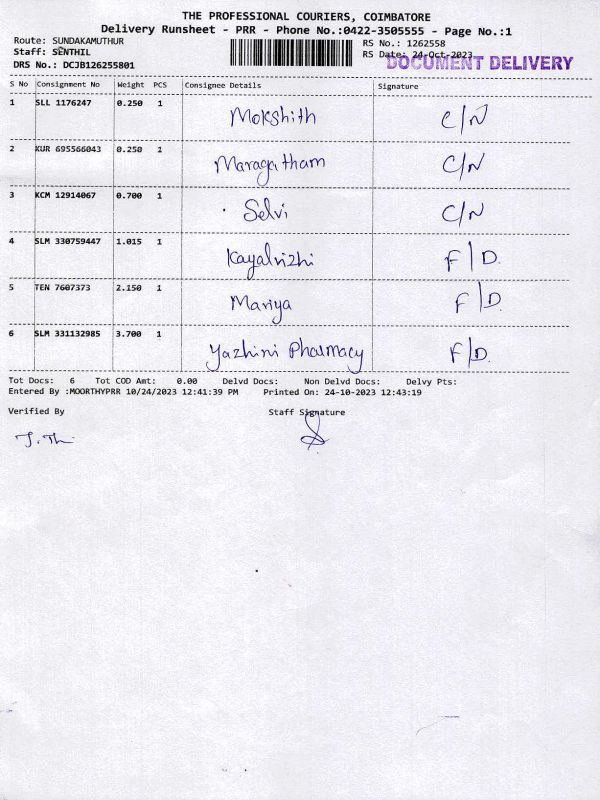 THE PROFESSIONAL COURIERS, COIMBATORE
Delivery Runsheet - PRR - Phone No.:0422-3505555 - Page No.:1
Route: SUNDAKAMUTHUR
RS No.: 1262558
Staff: SENTHIL
RS Date: 24-Oct-2023
DOCUMENT DELIVERY
DRS No.: DCJB126255801
S No Consignment No Weight PCS Consignee Details Signature
1 SLL 1176247 0.250 1 Mokshith C/N
2 KUR 695566043 0.250 1 Maragatham C/N
3 KCM 12914067 0.700 1 Selvi C/N
4 SLM 330759447 1.015 1 Kayalvizhi F/D.
5 TEN 7607373 2.150 1 Mariya F/D.
6 SLM 331132985 3.700 1 Yazhini Pharmacy F/D.
Tot Docs: 6 Tot COD Amt: 0.00 Delvd Docs: Non Delvd Docs: Delvy Pts:
Entered By :MOORTHYPRR 10/24/2023 12:41:39 PM Printed On: 24-10-2023 12:43:19
Verified By Staff Signature